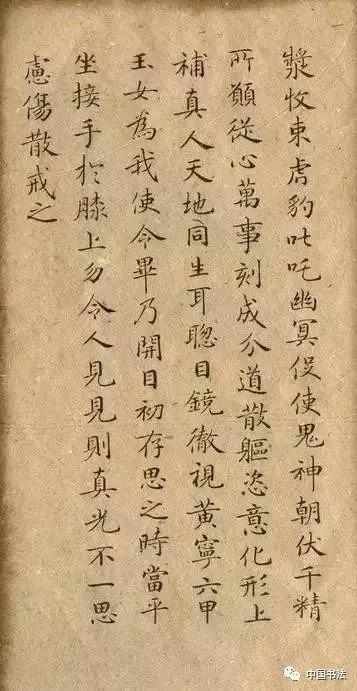 漿收束虎豹叱吒幽冥役使鬼神朝伏千精
所願從心萬事刻成分道散軀恣意化形上
補真人天地同生耳聰目鏡徹視黃寧六甲
玉女為我使令畢乃開目初存思之時當平
坐接手於膝上勿令人見見則真光不一思
慮傷散戒之
中国书法